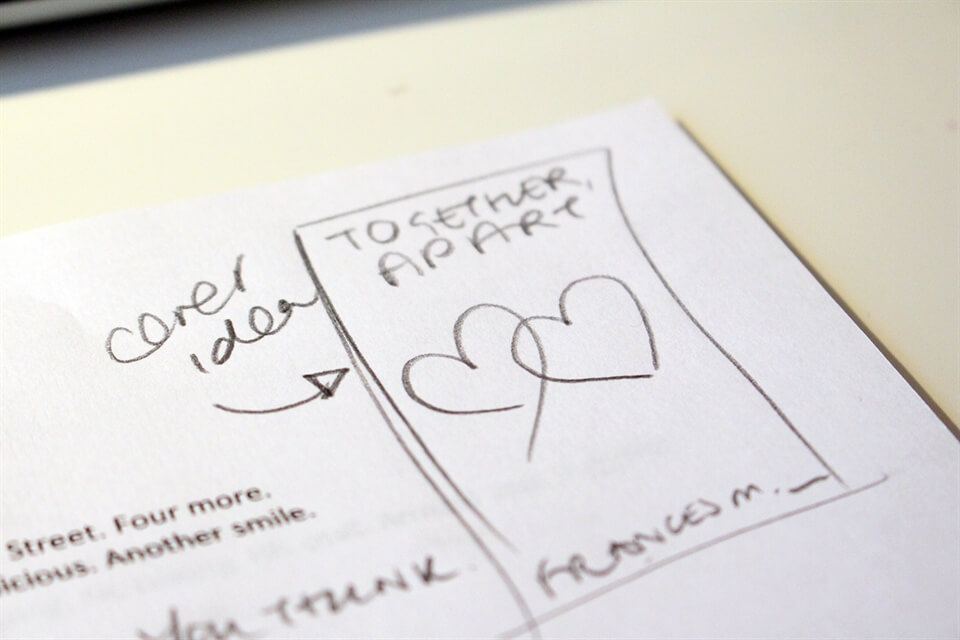 cover
idea
TOGETHER,
APART
FRANCES M. —
Street. Four more.
icious. Another smile.
YOU THINK.